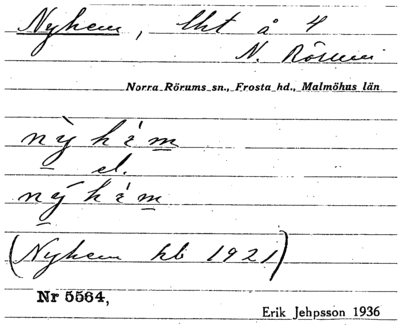 Nyhem, lht å 4
N. Rörum
Norra Rörums sn., Frosta hd., Malmöhus län
nỳhèm
el.
nýhèm
(Nyhem hb 1921)
Nr 5564,
Erik Jehpsson 1936